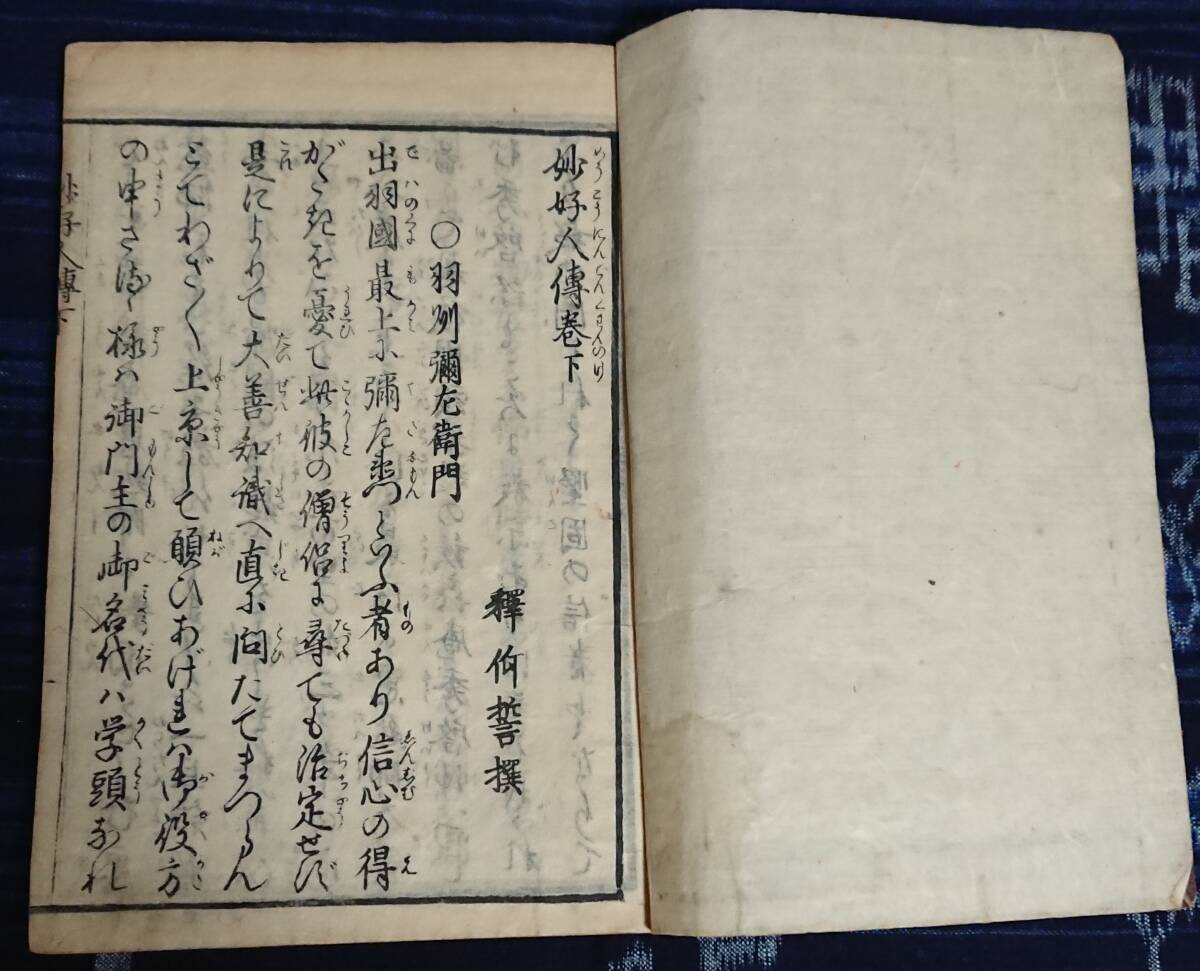 妙好人傳巻下
釋仰誓撰
〇羽州彌左衛門
出羽國最上に彌左衛門といふ者あり信心の得
がたきを憂て此彼の僧侶に尋ても治定せず
是によりて大善知識へ直に問たてまつらん
とてわざ〳〵上京して願ひあげれハ御役方
の申さるゝ様ハ御門主の御名代ハ学頭なれ
妙好人傳下